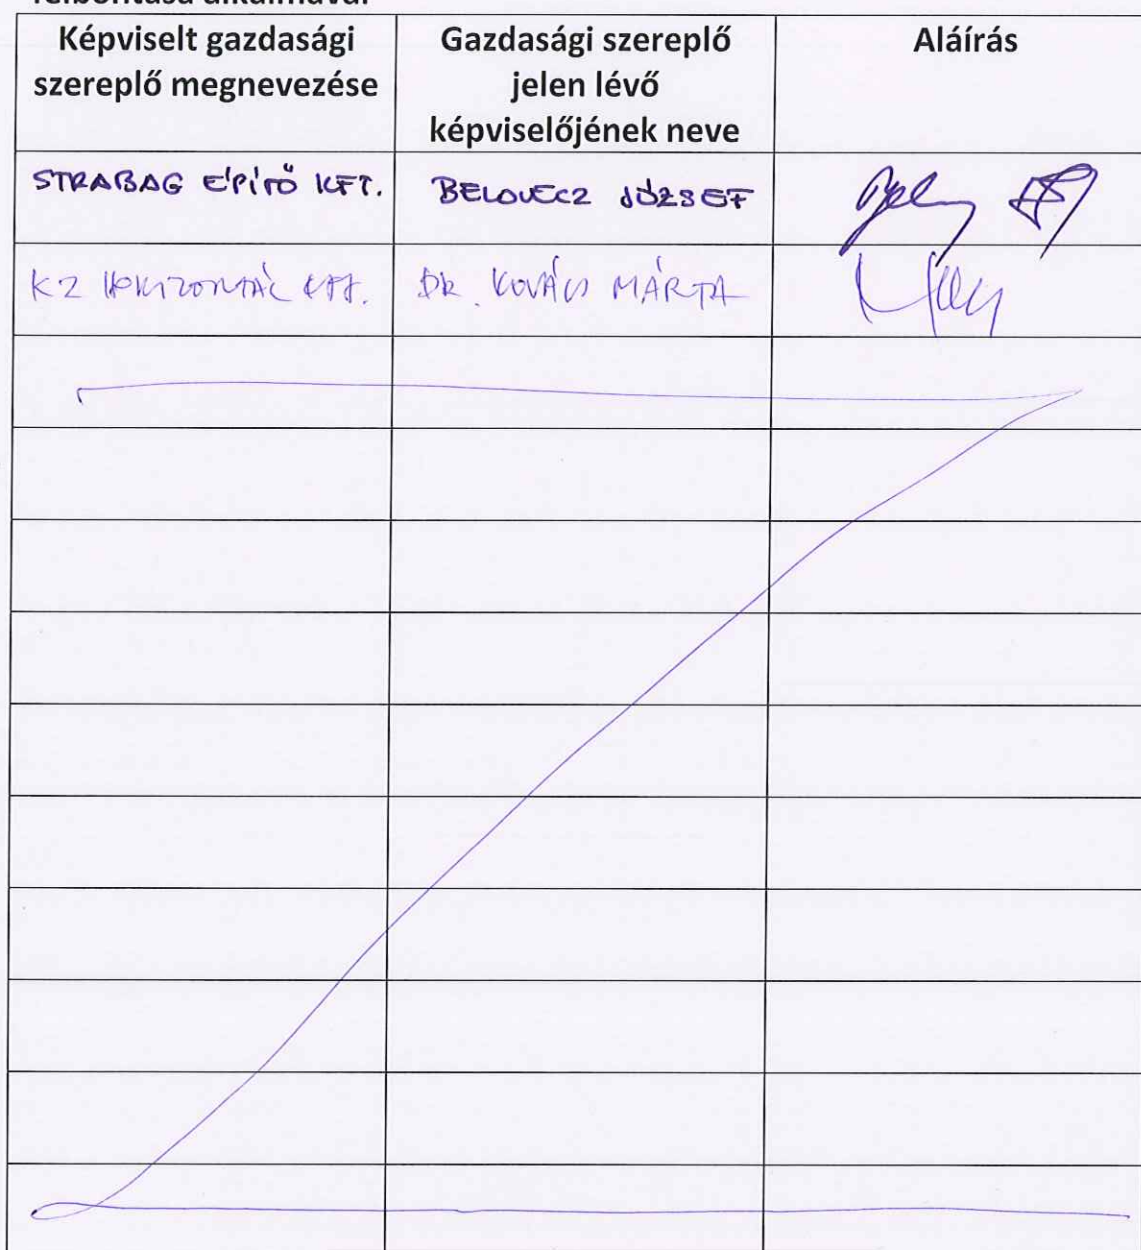 felbontása alkalmával
Képviselt gazdasági szereplő megnevezése
Gazdasági szereplő jelen lévő képviselőjének neve
Aláírás
STRABAG ÉPÍTŐ KFT. BELOVECZ JÓZSEF
KZ HORIZONTÁL KFT. DR. KOVÁCS MÁRTA